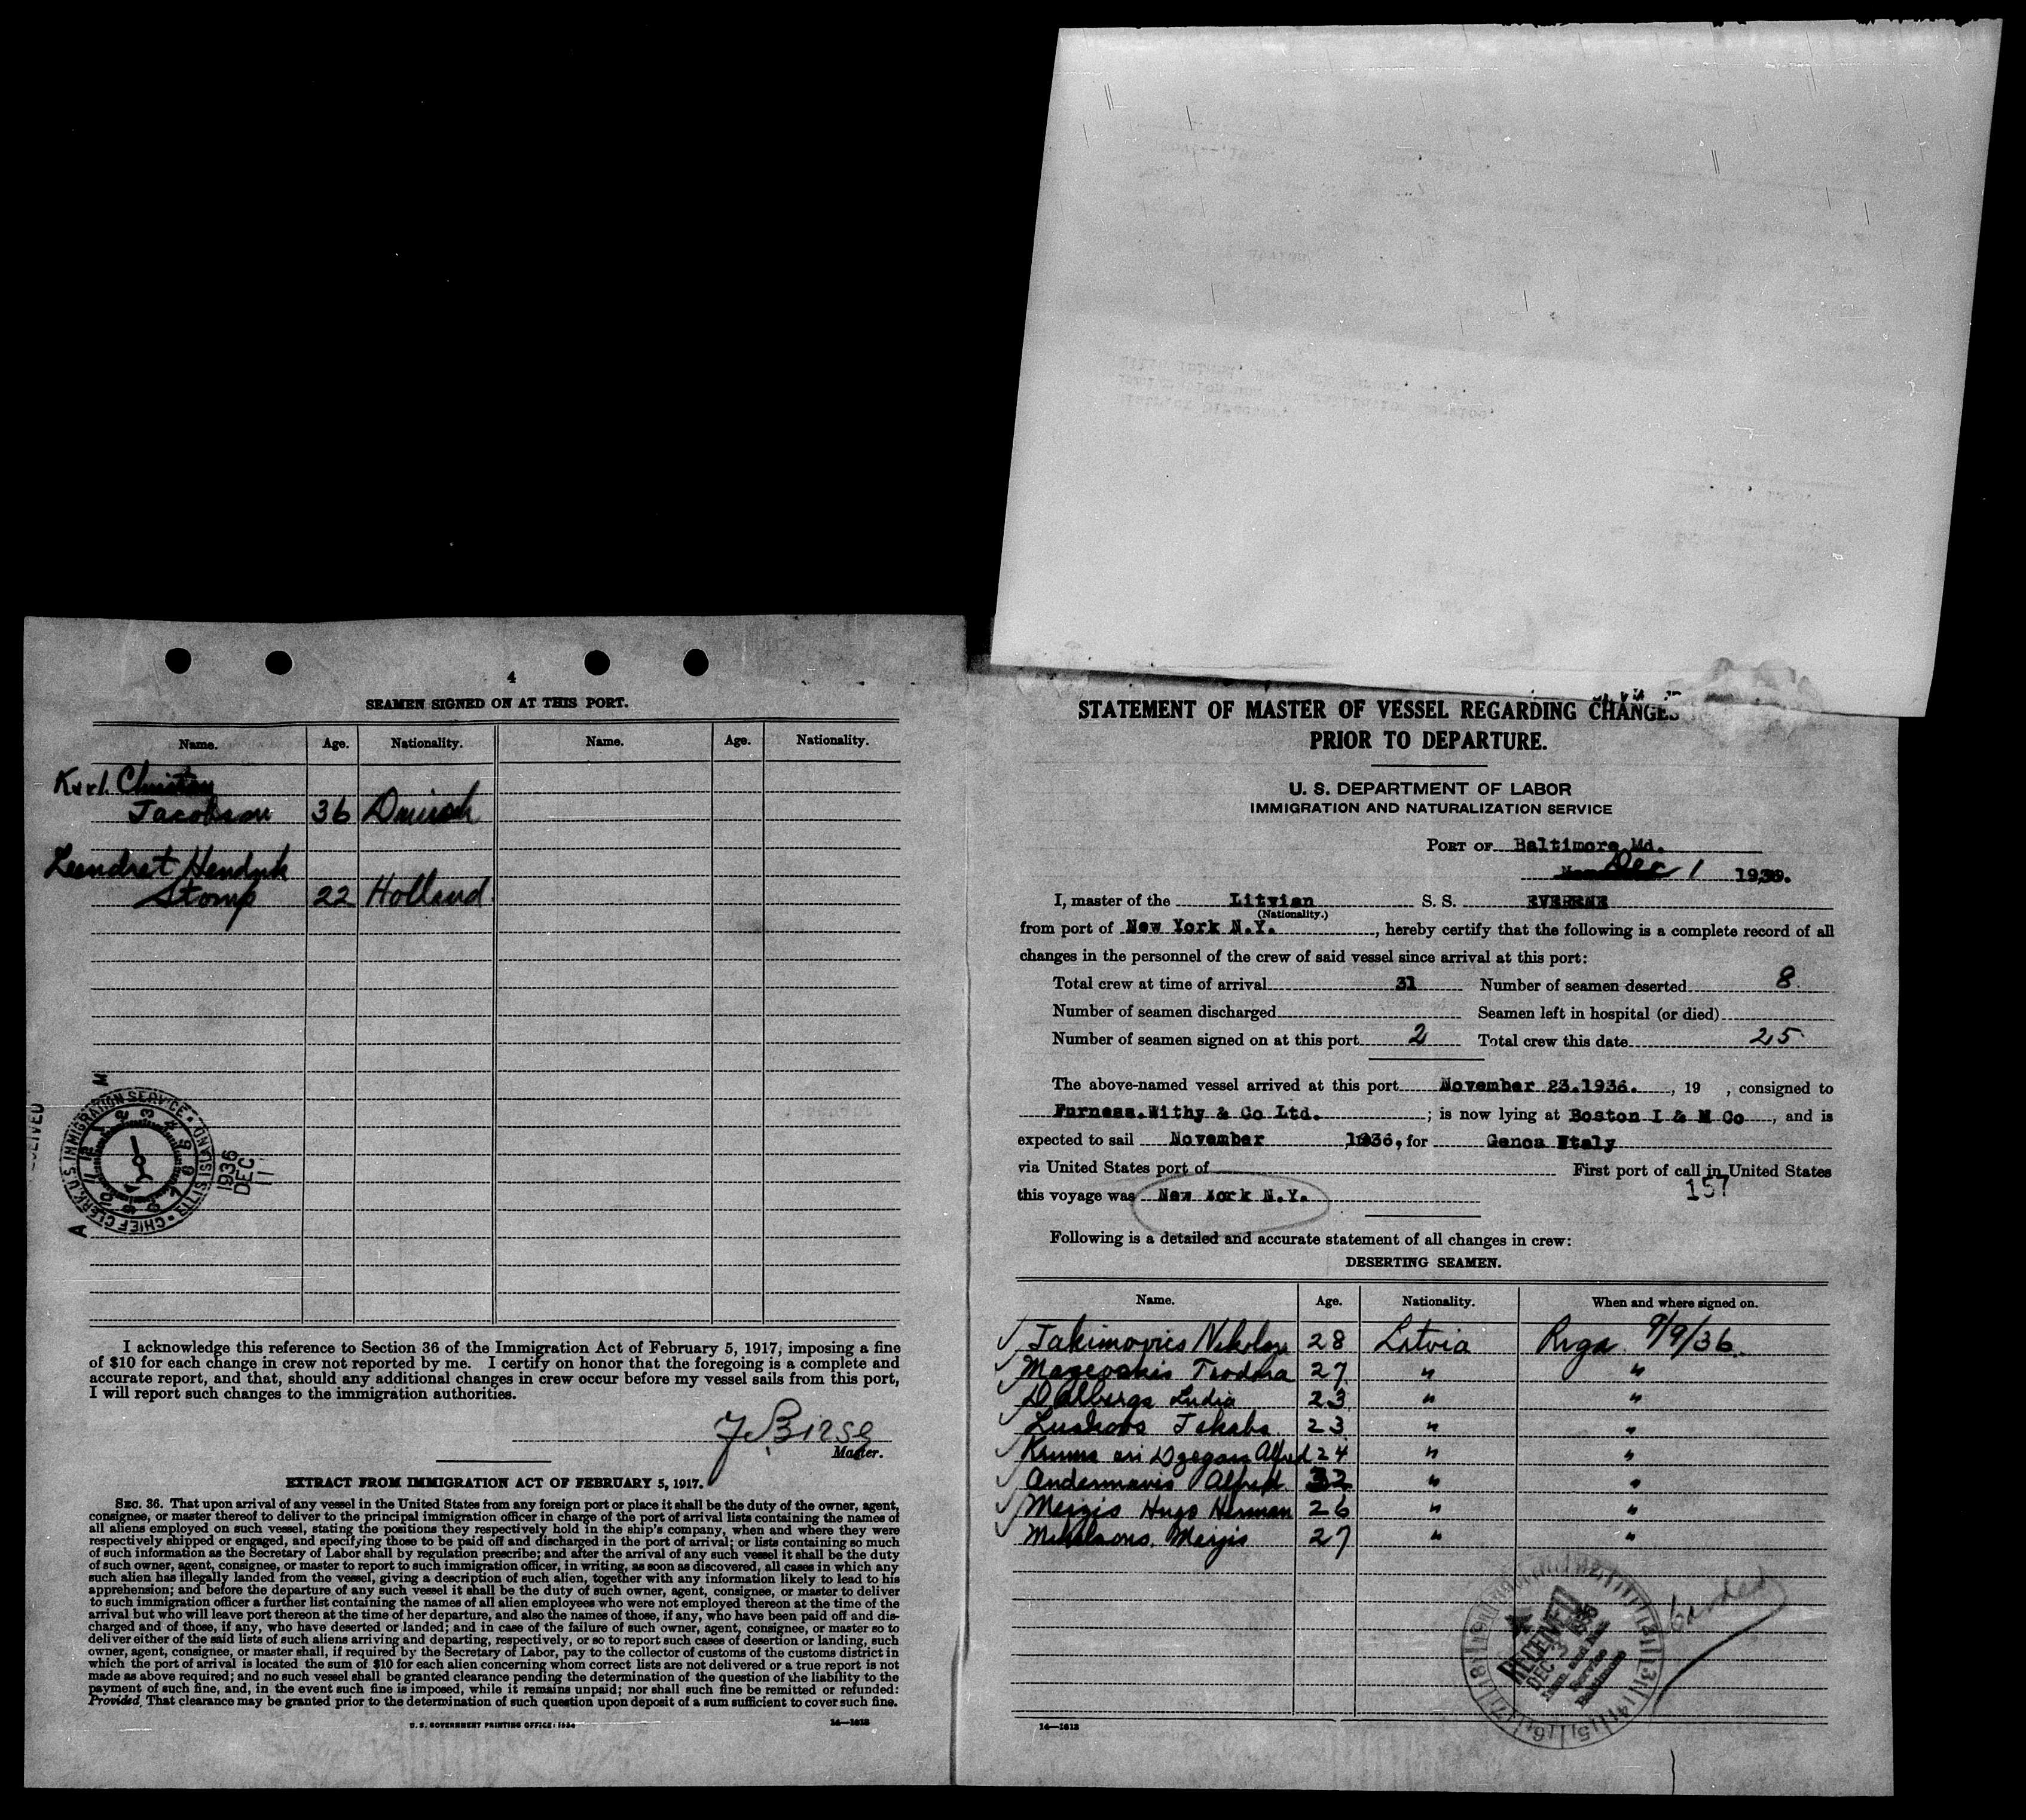 4
SEAMEN SIGNED ON AT THIS PORT.
Name. Age. Nationality. Name. Age. Nationality.
Karl Christen
Jacobson 36 Danish
Leendret Hendrik
Stomp 22 Holland
CHIEF CLERK, U.S. IMMIGRATION SERVICE
1936 DEC 11
I acknowledge this reference to Section 36 of the Immigration Act of February 5, 1917, imposing a fine
of $10 for each change in crew not reported by me. I certify on honor that the foregoing is a complete and
accurate report, and that, should any additional changes in crew occur before my vessel sails from this port,
I will report such changes to the immigration authorities.
Master.
EXTRACT FROM IMMIGRATION ACT OF FEBRUARY 5, 1917.
SEC. 36. That upon arrival of any vessel in the United States from any foreign port or place it shall be the duty of the owner, agent,
consignee, or master thereof to deliver to the principal immigration officer in charge of the port of arrival lists containing the names of
all aliens employed on such vessel, stating the positions they respectively hold in the ship's company, when and where they were
respectively shipped or engaged, and specifying those to be paid off and discharged in the port of arrival; or lists containing so much
of such information as the Secretary of Labor shall by regulation prescribe; and after the arrival of any such vessel it shall be the duty
of such owner, agent, consignee, or master to report to such immigration officer, in writing, as soon as discovered, all cases in which any
such alien has illegally landed from the vessel, giving a description of such alien, together with any information likely to lead to his
apprehension; and before the departure of any such vessel it shall be the duty of such owner, agent, consignee, or master to deliver
to such immigration officer a further list containing the names of all alien employees who were not employed thereon at the time of the
arrival but who will leave port thereon at the time of her departure, and also the names of those, if any, who have been paid off and dis-
charged and of those, if any, who have deserted or landed; and in case of the failure of such owner, agent, consignee, or master so to
deliver either of the said lists of such aliens arriving and departing, respectively, or so to report such cases of desertion or landing, such
owner, agent, consignee, or master shall, if required by the Secretary of Labor, pay to the collector of customs of the customs district in
which the port of arrival is located the sum of $10 for each alien concerning whom correct lists are not delivered or a true report is not
made as above required; and no such vessel shall be granted clearance pending the determination of the question of the liability to the
payment of such fine, and, in the event such fine is imposed, while it remains unpaid; nor shall such fine be remitted or refunded:
Provided, That clearance may be granted prior to the determination of such question upon deposit of a sum sufficient to cover such fine.
U. S. GOVERNMENT PRINTING OFFICE: 1934 14—1613
STATEMENT OF MASTER OF VESSEL REGARDING CHANGES
PRIOR TO DEPARTURE.
U. S. DEPARTMENT OF LABOR
IMMIGRATION AND NATURALIZATION SERVICE
PORT OF Baltimore Md.
Dec 1 1936.
I, master of the Litvian S. S. EVERENE
(Nationality.)
from port of New York N.Y. , hereby certify that the following is a complete record of all
changes in the personnel of the crew of said vessel since arrival at this port:
Total crew at time of arrival 31 Number of seamen deserted 8
Number of seamen discharged Seamen left in hospital (or died)
Number of seamen signed on at this port 2 Total crew this date 25
The above-named vessel arrived at this port November 23.1936. , 19 , consigned to
Furness.Withy & Co Ltd. ; is now lying at Boston I & M Co , and is
expected to sail November 1936, for Genoa Etaly
via United States port of First port of call in United States
this voyage was New York N.Y. 157
Following is a detailed and accurate statement of all changes in crew:
DESERTING SEAMEN.
Name. Age. Nationality. When and where signed on.
Jakimovics Nikolajs 28 Latvia Riga 9/9/36.
Mazeoskis Teodora 27 " "
Dalbergs Ludia 23 " "
Luskovs Jekabs 23 " "
Krums ari Dzegars Alfred 24 " "
Andermanis Alfred 32 " "
Mergis Hugo Herman 26 " "
Mikelsons. Mergis 27 " "
RECEIVED
DEC 3 1936
Imm. and Nat.
Service
Baltimore
carded
14—1613